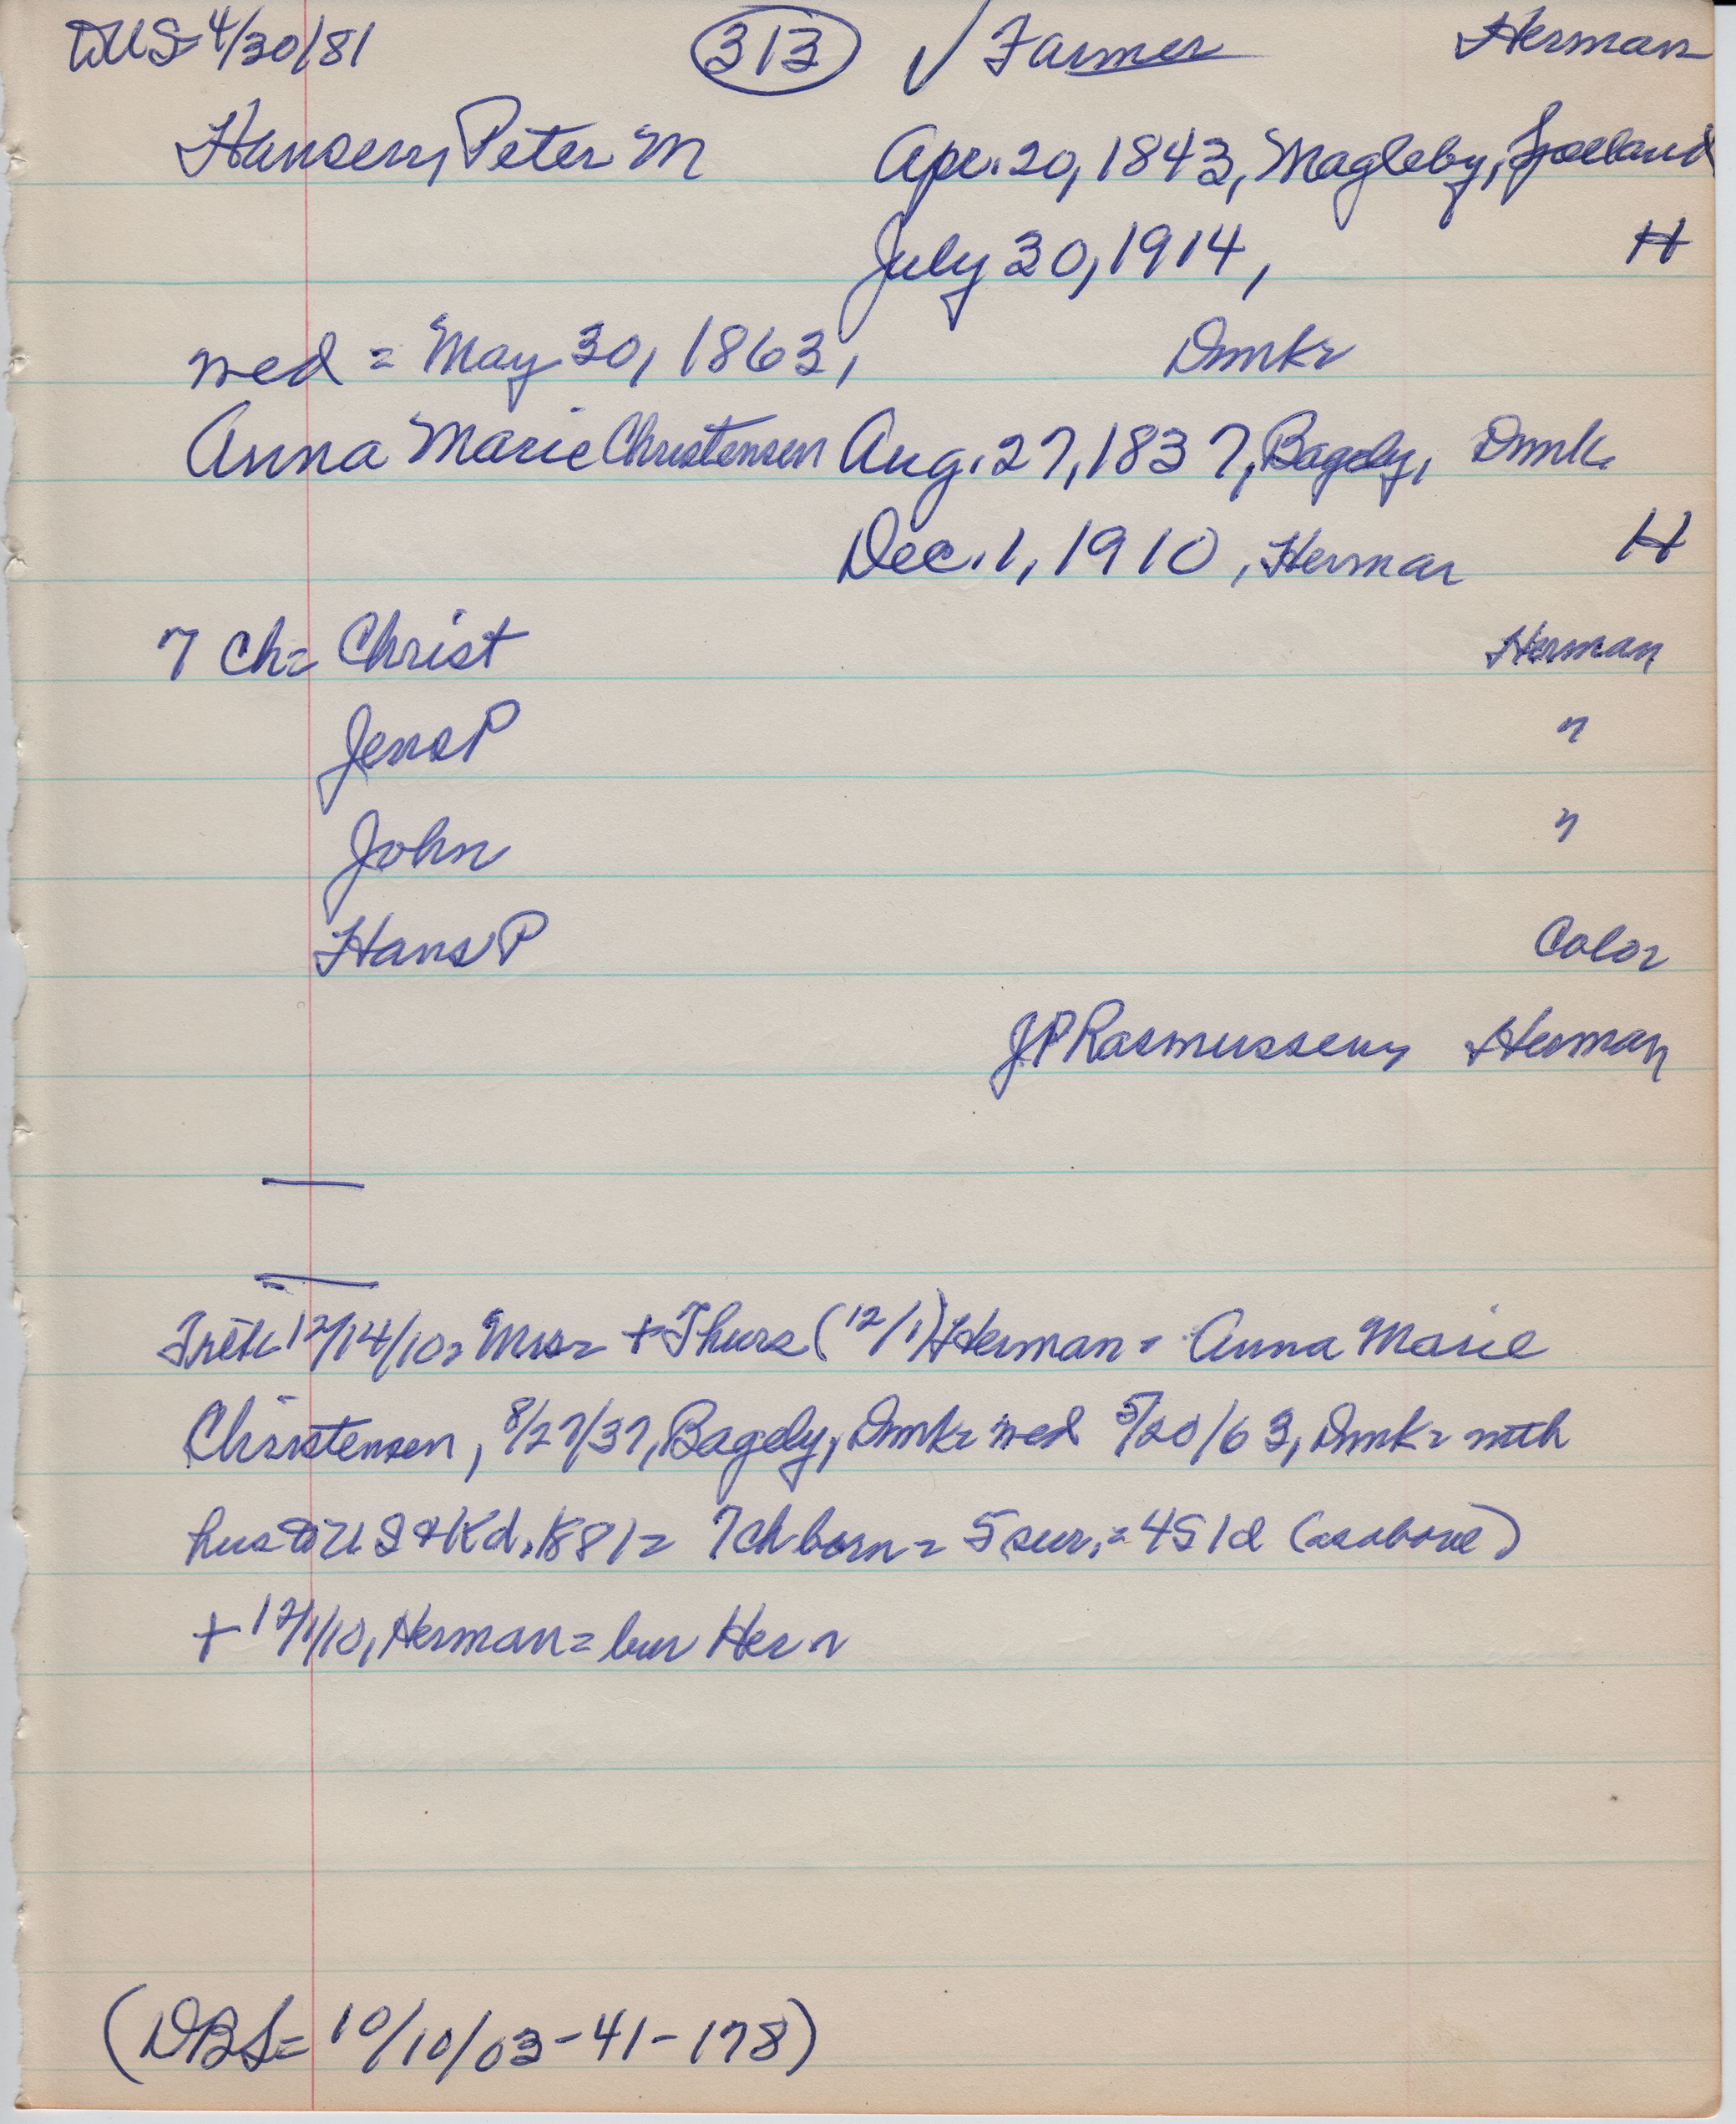 TUS=4/30/81 313 ✓ Farmer Herman
Hansen, Peter M Apr. 20, 1843, Magleby, Sjoelland
July 30, 1914, H
wed = May 30, 1863, Dmk=
Anna Marie Christensen Aug. 27, 1837, Bagely, Dmk.
Dec. 1, 1910, Herman H
7 ch= Christ Herman
Jens P "
John "
Hans P Color
JP Rasmussen, Herman
—
—
12/14/10= Mrs= + Thurs (12/1) Herman = Anna Marie
Christensen, 8/27/37, Bagely, Dmk= wed 5/30/63, Dmk= with
hus to US + Kd, 1881= 7 ch born = 5 sur. = 4S 1d (as above)
+ 12/1/10, Herman = bur Her n
(DBS= 10/10/03-41-178)